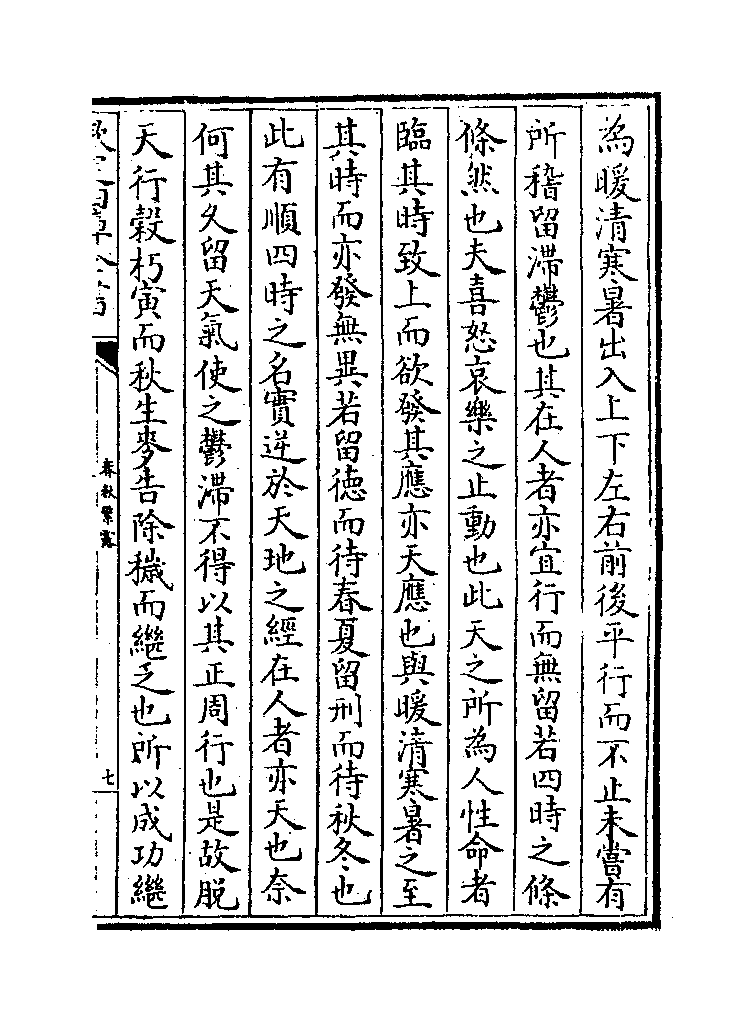 為暖清寒暑出入上下左右前後平行而不止未嘗有
所稽留滯鬱也其在人者亦宜行而無留若四時之條
條然也夫喜怒哀樂之止動也此天之所為人性命者
臨其時致上而欲發其應亦天應也與暖清寒暑之至
其時而亦發無異若留徳而待春夏留刑而待秋冬也
此有順四時之名實逆於天地之經在人者亦天也奈
何其久留天氣使之鬱滯不得以其正周行也是故脫
天行穀朽寅而秋生麥告除穢而繼乏也所以成功繼
春秋繁露
七